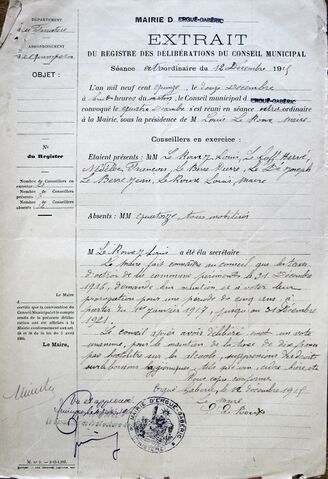 DÉPARTEMENT
MAIRIE D ERGUÉ-GABÉRIC
EXTRAIT
ARRONDISSEMENT
DU REGISTRE DES DÉLIBÉRATIONS DU CONSEIL MUNICIPAL
OBJET :
Séance extraordinaire du 12 Décembre 1915
L'an mil neuf cent quinze, le douze Décembre
à heures du matin, le Conseil municipal d ERGUÉ-GABÉRIC
convoqué le quatre Décembre s'est réuni en séance extraordinaire
à la Mairie, sous la présidence de M Louis Le Roux, maire
Conseillers en exercice :
Etaient présents : MM Louis, Le Goff Hervé,
Nédélec François, Le Berre Pierre, Le Joseph
Le Berre Jean, Le Roux Louis, maire
N°
du Registre
Nombre de Conseillers
en exercice
Nombre de Conseillers
présents
Absents : MM quatorze tous mobilisés
M Louis a été élu secrétaire
Le Maire fait connaître au conseil que les taxes
d'octroi de la commune périment le 31 Décembre
1916, demande leur et à voter leur
prorogation pour une période de cinq ans à
partir du 1er Janvier 1917 jusqu'au 31 Décembre
1921.
Le conseil après avoir délibéré émet un vote
unanime, pour le maintien de la taxe de dix francs
par hectolitre sur les alcools, suppression des droits
sur les boissons hygiéniques, tels que vin, cidre, bière etc.
Pour copie conforme
Ergué-Gabéric, le Décembre 1915
Le Maire
Le Maire
certifie que la convocation du
Conseil Municipal et le compte
rendu de la présente délibération
ont été affichés à la Mairie
conformément aux art.
et 56 de la loi du 5 avril
1884.
Le Maire,
MAIRIE D'ERGUÉ GABÉRIC
FINISTÈRE